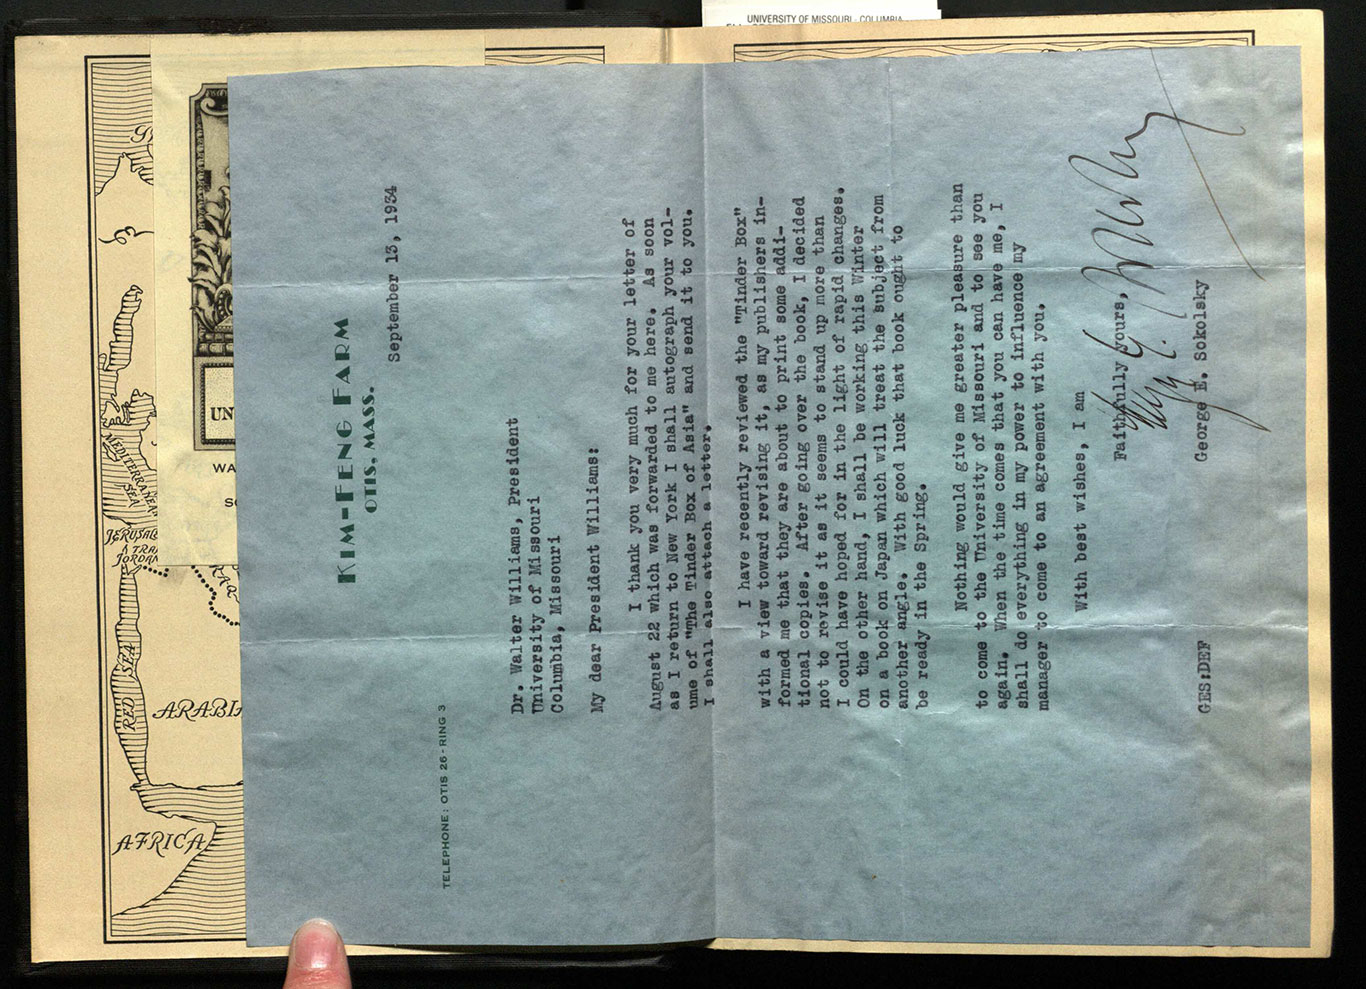 UNIVERSITY OF MISSOURI - COLUMBIA
KIM-FENG FARM
OTIS, MASS.
September 13, 1934
TELEPHONE: OTIS 26 - RING 3
Dr. Walter Williams, President
University of Missouri
Columbia, Missouri
My dear President Williams:
I thank you very much for your letter of
August 22 which was forwarded to me here. As soon
as I return to New York I shall autograph your vol-
ume of "The Tinder Box of Asia" and send it to you.
I shall also attach a letter.
I have recently reviewed the "Tinder Box"
with a view toward revising it, as my publishers in-
formed me that they are about to print some addi-
tional copies. After going over the book, I decided
not to revise it as it seems to stand up more than
I could have hoped for in the light of rapid changes.
On the other hand, I shall be working this Winter
on a book on Japan which will treat the subject from
another angle. With good luck that book ought to
be ready in the Spring.
Nothing would give me greater pleasure than
to come to the University of Missouri and to see you
again. When the time comes that you can have me, I
shall do everything in my power to influence my
manager to come to an agreement with you.
With best wishes, I am
Faithfully yours,
George E. Sokolsky
GES:DEF
UN
WA
MEDITERRANEAN
SEA
JERUSALE
TRA
JORDAN
RED SEA
ARABI
AFRICA